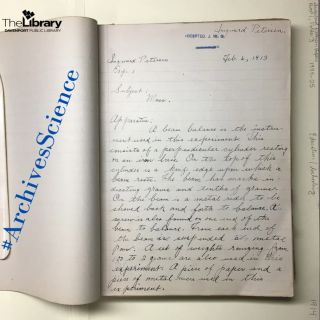 The Library
DAVENPORT PUBLIC LIBRARY
#ArchivesScience
Ingward Petersen.
ACCEPTED. J. W. G.
Ingward Petersen
Feb. 2, 1913
Exp. 1
Subject.
Mass.
Apparatus.
A beam balance is the instru-
ment used in this experiment. This
consists of a perpendicular cylinder resting
on an iron base. On the top of this
cylinder is a knife edge upon which a
beam rests. The beam has marks in-
dicating grams and tenths of grams.
On the beam is a metal rider to be
shoved back and forth to balance. A
screw is also found on one end of the
beam to balance. From each end of
the beam are suspended a metal
pan. A set of weights ranging from
100 to 2 grams are also used in this
experiment. A piece of paper and a
piece of metal were used in this
experiment.
1914